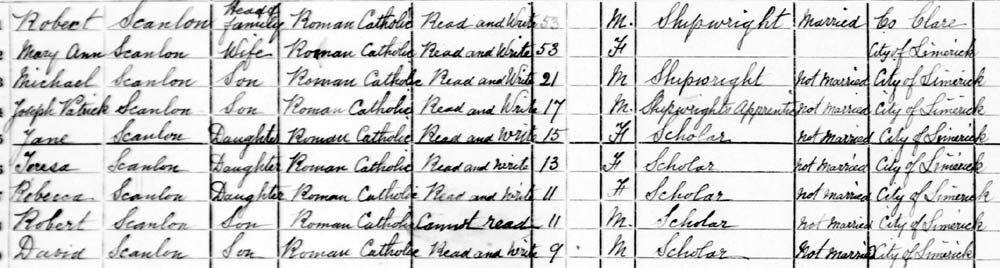 Robert Scanlon Head of family Roman Catholic Read and Write 53 M. Shipwright Married Co Clare
Mary Ann Scanlon Wife Roman Catholic Read and Write 53 F City of Limerick
Michael Scanlon Son Roman Catholic Read and Write 21 M Shipwright Not Married City of Limerick
Joseph Patrick Scanlon Son Roman Catholic Read and Write 17 M. Shipwright Apprentice Not Married City of Limerick
Jane Scanlon Daughter Roman Catholic Read and Write 15 F Scholar Not Married City of Limerick
Teresa Scanlon Daughter Roman Catholic Read and Write 13 F Scholar Not Married City of Limerick
Rebecca Scanlon Daughter Roman Catholic Read and Write 11 F Scholar Not Married City of Limerick
Robert Scanlon Son Roman Catholic Cannot read 11 M. Scholar Not Married City of Limerick
David Scanlon Son Roman Catholic Read and Write 9 M Scholar Not Married City of Limerick